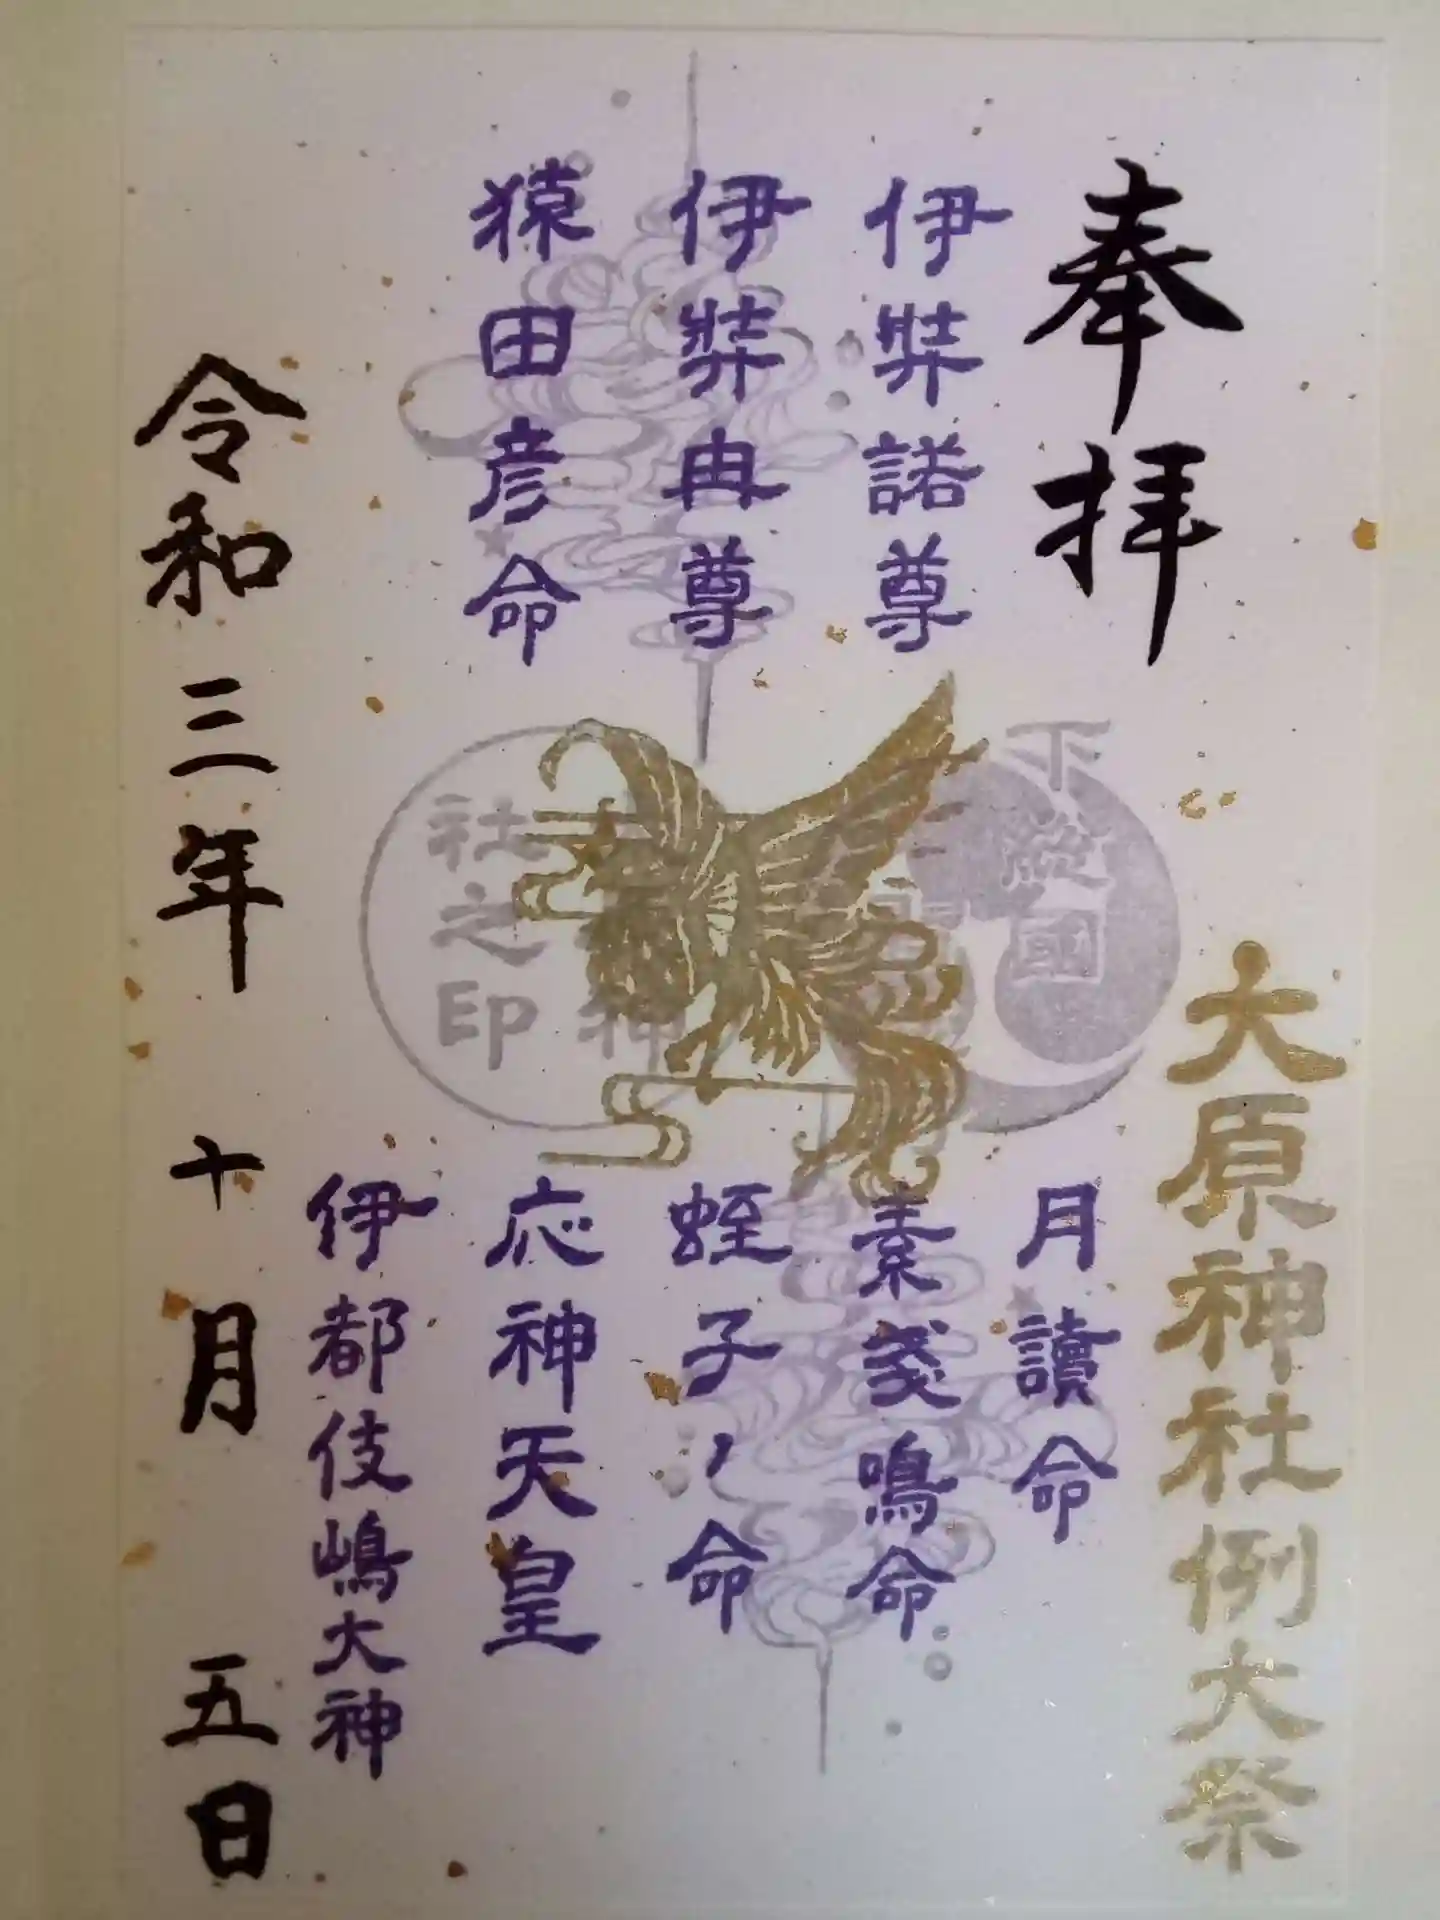 奉拝
伊弉諾尊
伊弉冉尊
猿田彦命
下総國
社之印
大原神社例大祭
月讀命
素戔鳴命
蛭子ノ命
応神天皇
伊都伎嶋大神
令和三年十月五日